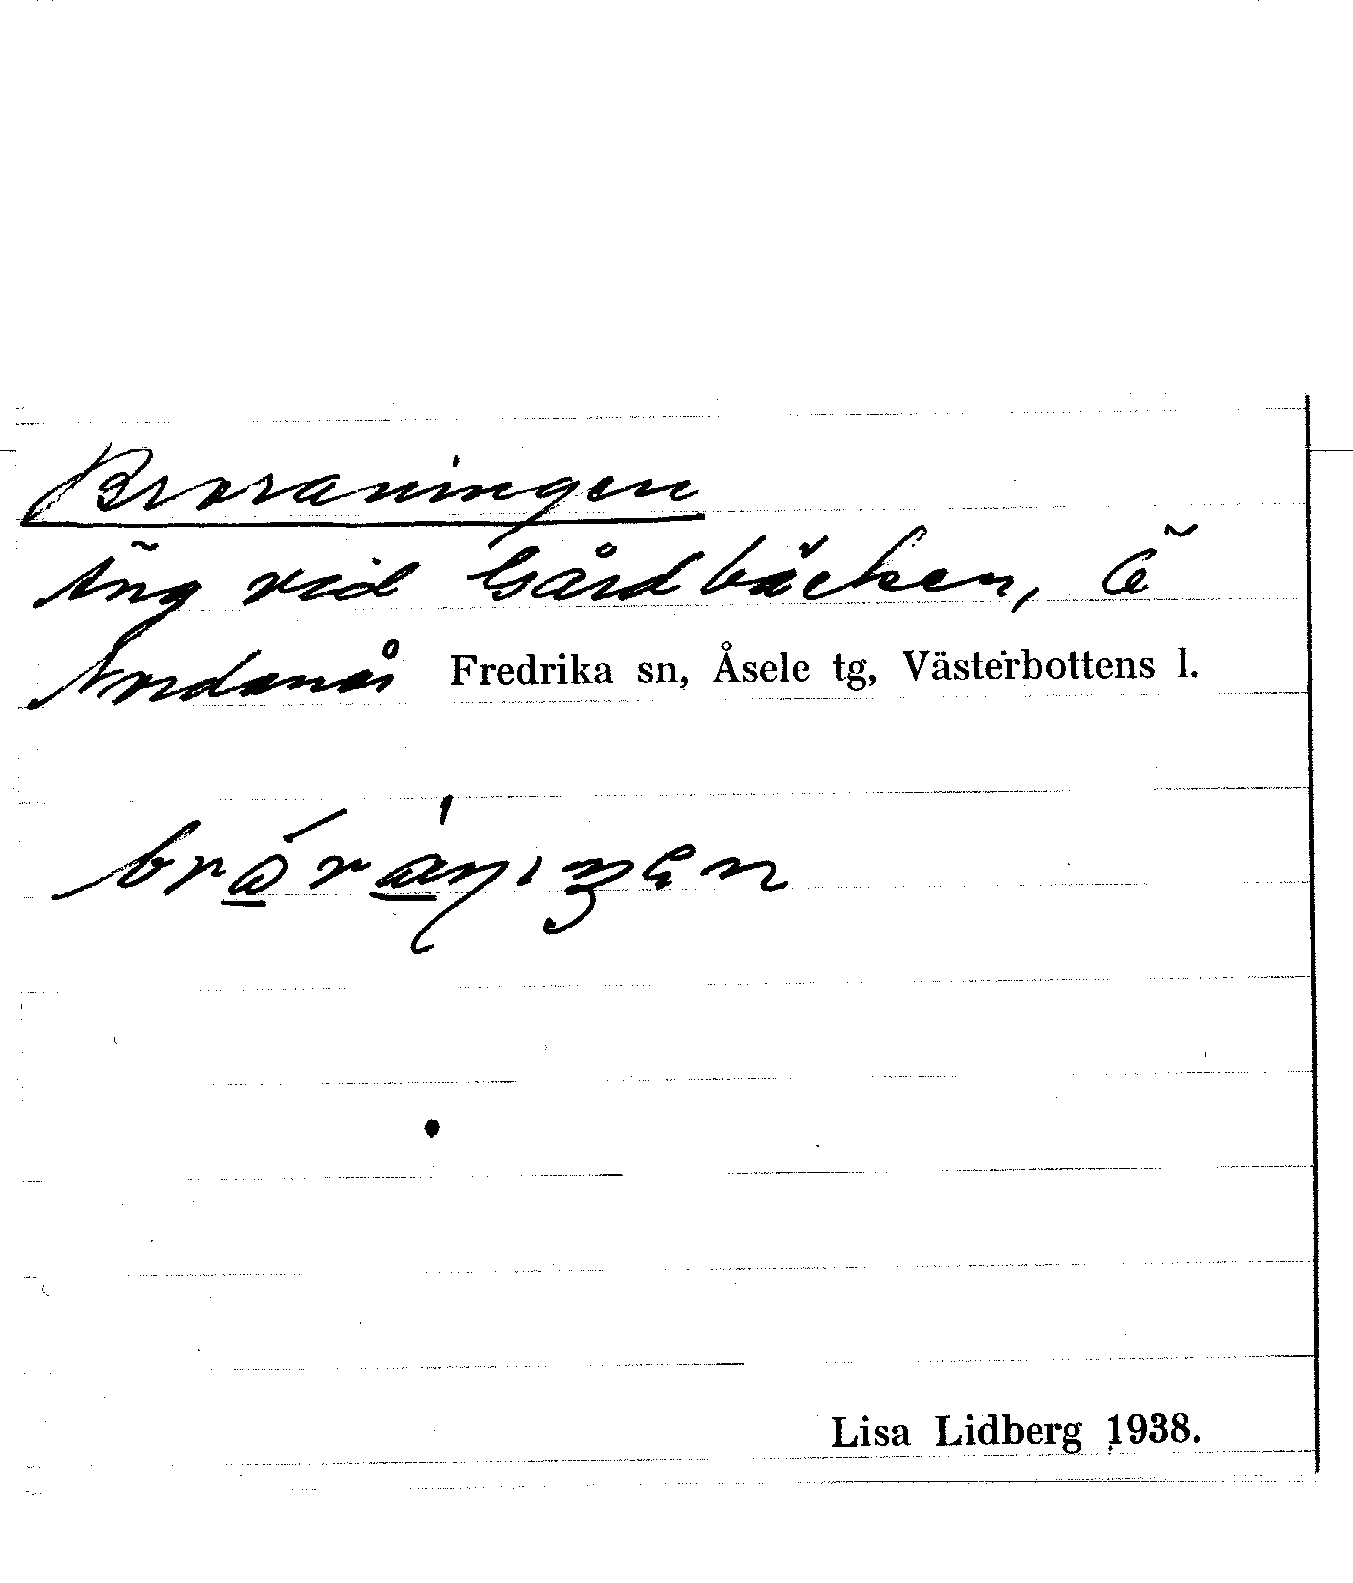 Broraningen
Äng vid Gårdbäcken, Ö
Nordanås Fredrika sn, Åsele tg, Västerbottens l.
Lisa Lidberg 1938.